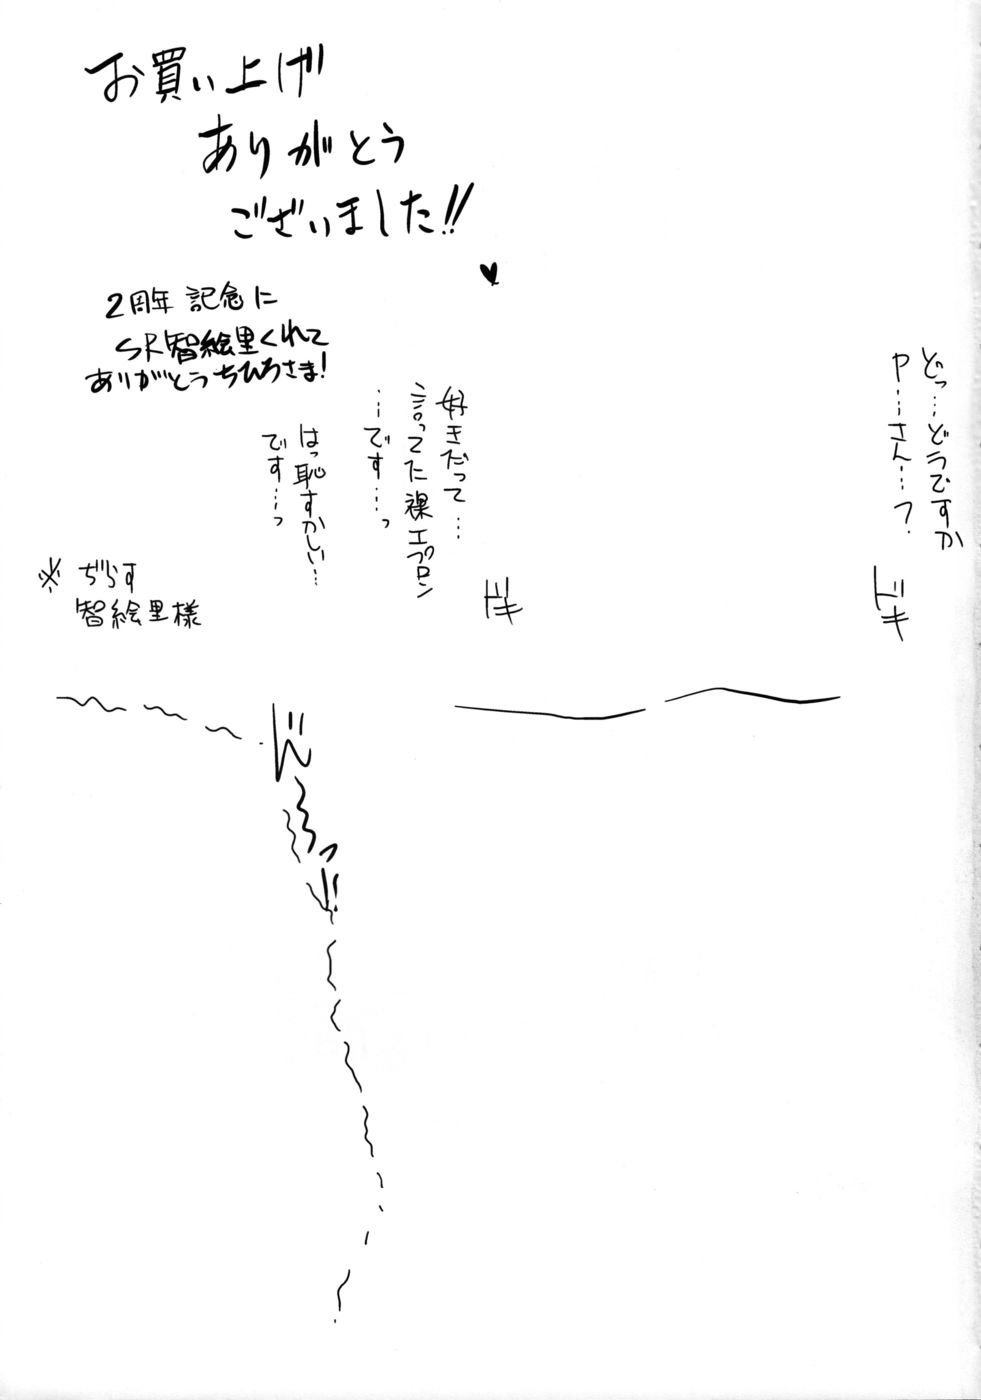 お買い上げ
ありがとう
ございました!!
♥
2周年 記念に
SR智絵里くれて
ありがとうちひろさま!
どっ…どうですか
P…さん…?
ドキ
好きだって…
言ってた裸エプロン
…です…っ
はっ恥ずかしい…
です…っ
ドキ
※ ぢらす
智絵里様
どん
〜っ!!